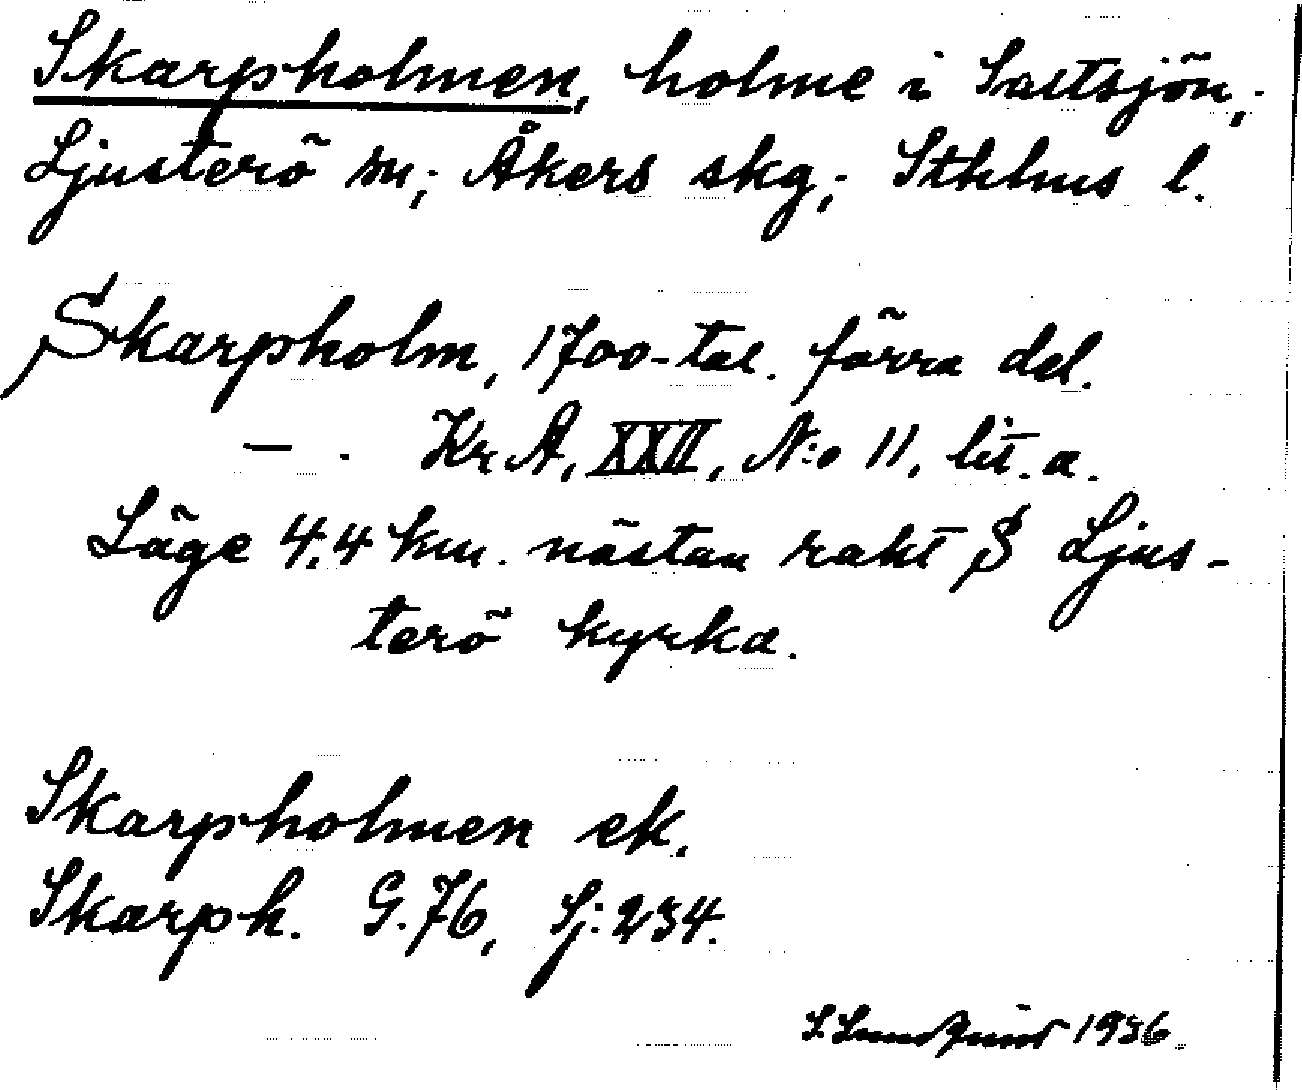 Skarpholmen, holme i Saltsjön,
Ljusterö sn; Åkers skg; Sthlms l.
Skarpholm, 1700-tal. förra del.
— . KrA, XXII, N:o 11, lit. a.
Läge 4,4 km. nästan rakt S Ljus-
terö kyrka.
Skarpholmen ek.
Skarph. G. 76, Sj: 234.
1936